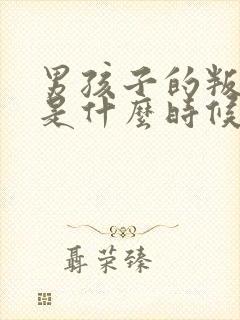 男孩子的叛
是什麼時候
聶荣臻